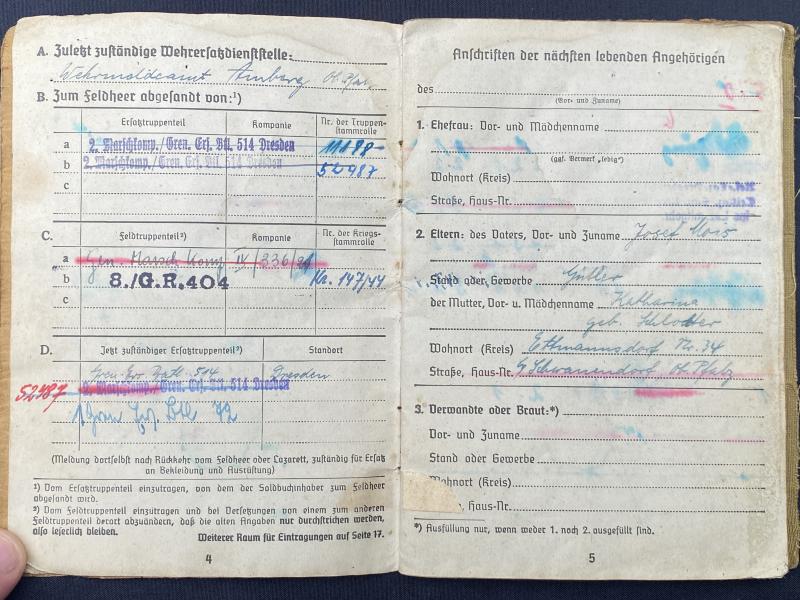 A. Zuletzt zuständige Wehrersatzdienststelle:
Wehrmeldeamt Amberg Ob. Pfalz
B. Zum Feldheer abgesandt von:¹)
Ersatztruppenteil Kompanie Nr. der Truppen-
stammrolle
a 2. Marschkomp./Gren. Ers. Btl. 514 Dresden 11188
b 2. Marschkomp./Gren. Ers. Btl. 514 Dresden 52987
c
C. Feldtruppenteil²) Kompanie Nr. der Kriegs-
stammrolle
a Gren. Marsch Komp IV/336/
b 8./G.R.404 Kr. 147/44
c
D. Jetzt zuständiger Ersatztruppenteil²) Standort
Gren. Ers. Batl. 514 Dresden
52987 2. Marschkomp./Gren. Ers. Btl. 514 Dresden
Gren Ers. Btl
(Meldung dortselbst nach Rückkehr vom Feldheer oder Lazarett, zuständig für Ersatz
an Bekleidung und Ausrüstung)
¹) Vom Ersatztruppenteil einzutragen, von dem der Soldbuchinhaber zum Feldheer
abgesandt wird.
²) Vom Feldtruppenteil einzutragen und bei Versetzungen von einem zum anderen
Feldtruppenteil derart abzuändern, daß die alten Angaben nur durchstrichen werden,
also leserlich bleiben.
Weiterer Raum für Eintragungen auf Seite 17.
4
Anschriften der nächsten lebenden Angehörigen
des
(Vor- und Zuname)
1. Ehefrau: Vor- und Mädchenname
(ggf. Vermerk „ledig")
Wohnort (Kreis)
Straße, Haus-Nr.
2. Eltern: des Vaters, Vor- und Zuname Josef
Stand oder Gewerbe Gütler
der Mutter, Vor- u. Mädchenname Katharina
geb. Schlotter
Wohnort (Kreis) Ettmannsdorf Nr. 34
Straße, Haus-Nr. Schwanendorf Ob. Pfalz
3. Verwandte oder Braut:*)
Vor- und Zuname
Stand oder Gewerbe
Wohnort (Kreis)
, Haus-Nr.
*) Ausfüllung nur, wenn weder 1. noch 2. ausgefüllt sind.
5